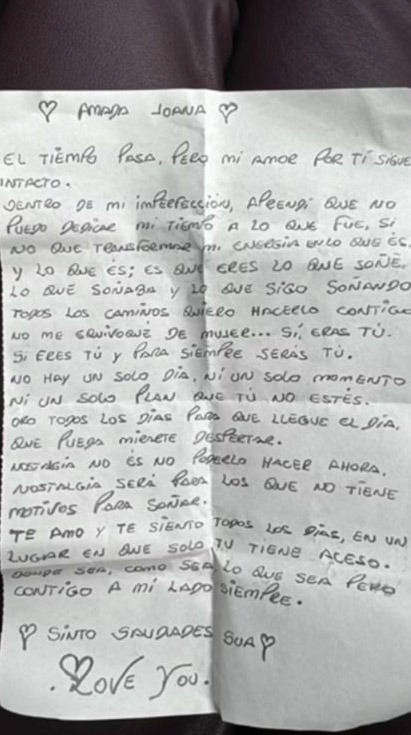 ♡ AMADA JOANA ♡
EL TIEMPO PASA, PERO MI AMOR POR TÍ SIGUE
INTACTO.
DENTRO DE MI IMPERFECCIÓN, APRENDÍ QUE NO
PUEDO DEDICAR MI TIEMPO A LO QUE FUE, SI
NO QUE TRANSFORMAR MI ENERGIA EN LO QUE ÉS,
Y LO QUE ÉS; ES QUE ERES LO QUE SOÑE,
LO QUE SOÑABA Y LO QUE SIGO SOÑANDO
TODOS LOS CAMINOS QUIERO HACERLO CONTIGO
NO ME EQUIVOQUÉ DE MUJER... SÍ, ERAS TÚ.
SI ERES TÚ Y PARA SIEMPRE SERAS TÚ.
NO HAY UN SOLO DÍA, NI UN SOLO MOMENTO
NI UN SOLO PLAN QUE TÚ NO ESTÉS.
ORO TODOS LOS DÍAS PARA QUE LLEGUE EL DÍA,
QUE PUEDA MIERETE DESPERTAR.
NOSTALGIA NO ÉS NO PODERLO HACER AHORA,
NOSTALGIA SERÁ PARA LOS QUE NO TIENE
MOTIVOS PARA SOÑAR.
TE AMO Y TE SIENTO TODOS LOS DÍAS, EN UN
LUGAR EN QUE SOLO TU TIENE ACESO.
DONDE SEA, COMO SEA, LO QUE SEA PERO
CONTIGO A MI LADO SIEMPRE.
♡ SINTO SAUDADES SUA ♡
. LOVE YOU.